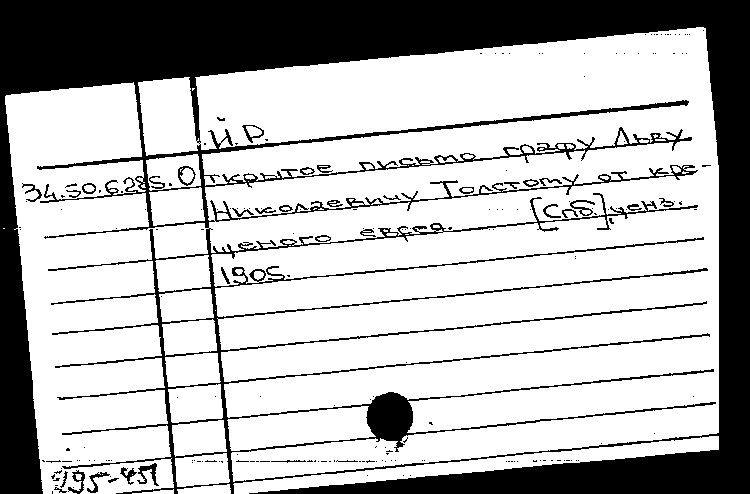 Й.Р.
34.50.6.285. Открытое письмо графу Льву
Николаевичу Толстому от кре-
щеного еврея. [Спб.], ценз.
1905.
295-451